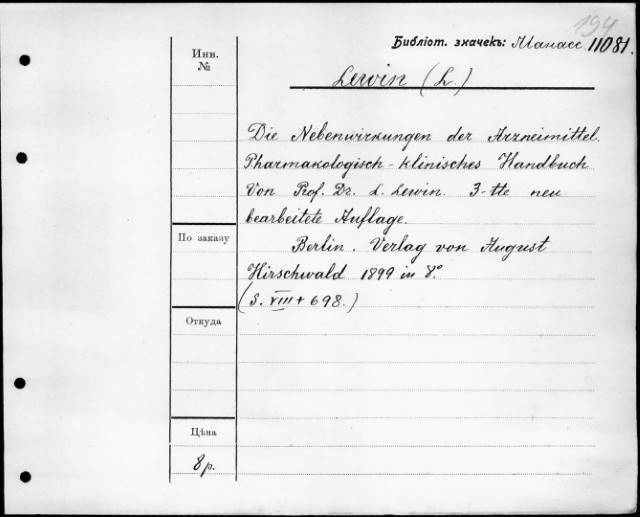 194
Библіот. значекъ: Манасс. 11081.
Инв.
№
Lewin (L.)
Die Nebenwirkungen der Arzneimittel.
Pharmakologisch-klinisches Handbuch
Von Prof. Dr. L. Lewin. 3-tte neu
bearbeitete Auflage.
По заказу
Berlin. Verlag von August
Hirschwald 1899 in 8.°
(S. VIII + 698.)
Откуда
Цѣна
8 р.